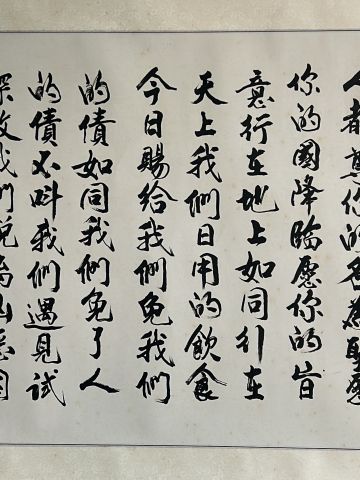 人都尊你的名為聖愿
你的國降臨愿你的旨
意行在地上如同行在
天上我們日用的飲食
今日賜給我們免我們
的債如同我們免了人
的債不呌我們遇見試
探救我們脫离凶惡國